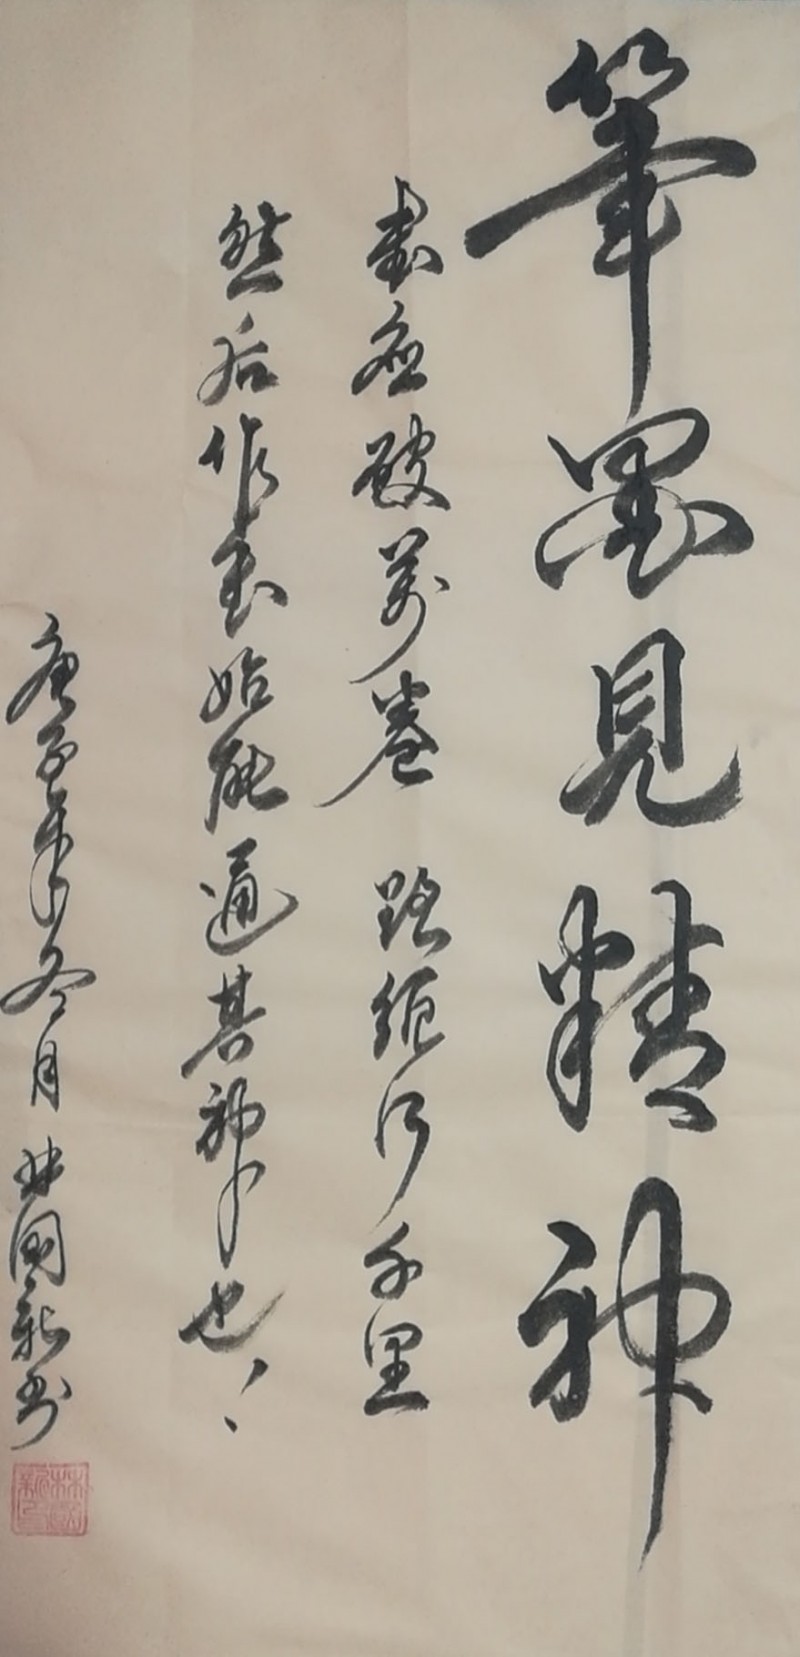 筆墨見精神
書应破萬卷 路須行千里
然后作書始能通其神也！
庚子年冬月 林國新书
林國新印